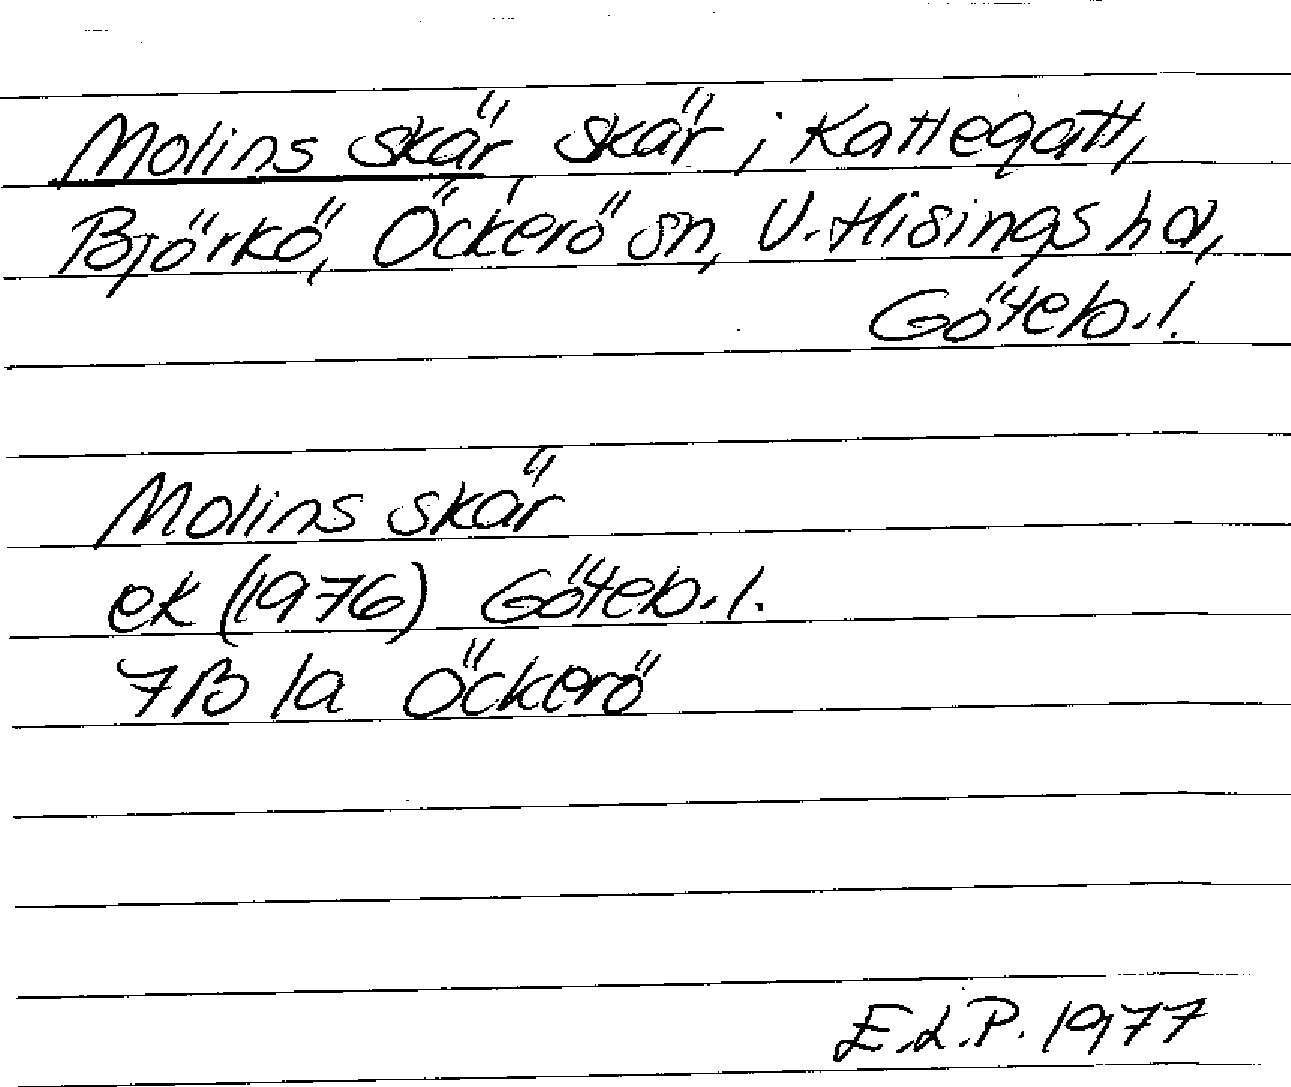 Molins skär skär, i Kattegatt,
Björkö, Öckerö sn, V. Hisings hd,
Göteb.l.
Molins skär
ek (1976) Göteb.l.
7B 1a Öckerö
E.L.P. 1977